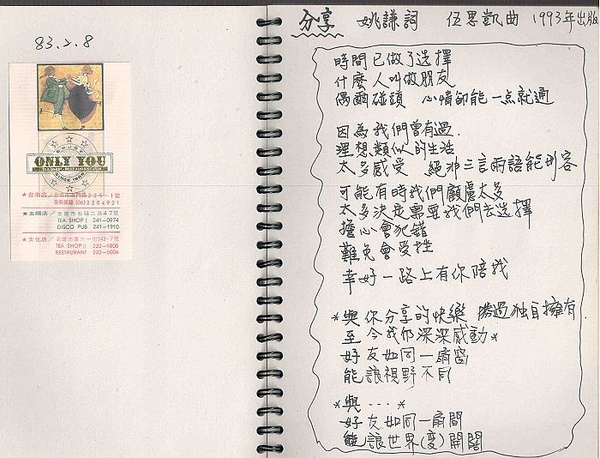 83.2.8
ONLY YOU
TEA SHOP I 241-0974
DISCO PUB 241-1910
TEA SHOP II 222-9800
RESTAURANT 222-6006
分享 姚謙詞 伍思凱曲 1993年出版
時間已做了選擇
什麼人叫做朋友
偶爾碰頭 心情卻能一点就通
因為我們曾有過
理想類似的生活
太多感受 絕非三言兩語能形容
可能有時我們顧慮太多
太多決定需要我們去選擇
擔心會犯錯
難免會受挫
幸好一路上有你陪我
*與你分享的快樂 勝過獨自擁有
至今我仍深深感動*
好友如同一扇窗
能讓視野不同
*與...*
好友如同一扇門
能讓世界(變)開闊